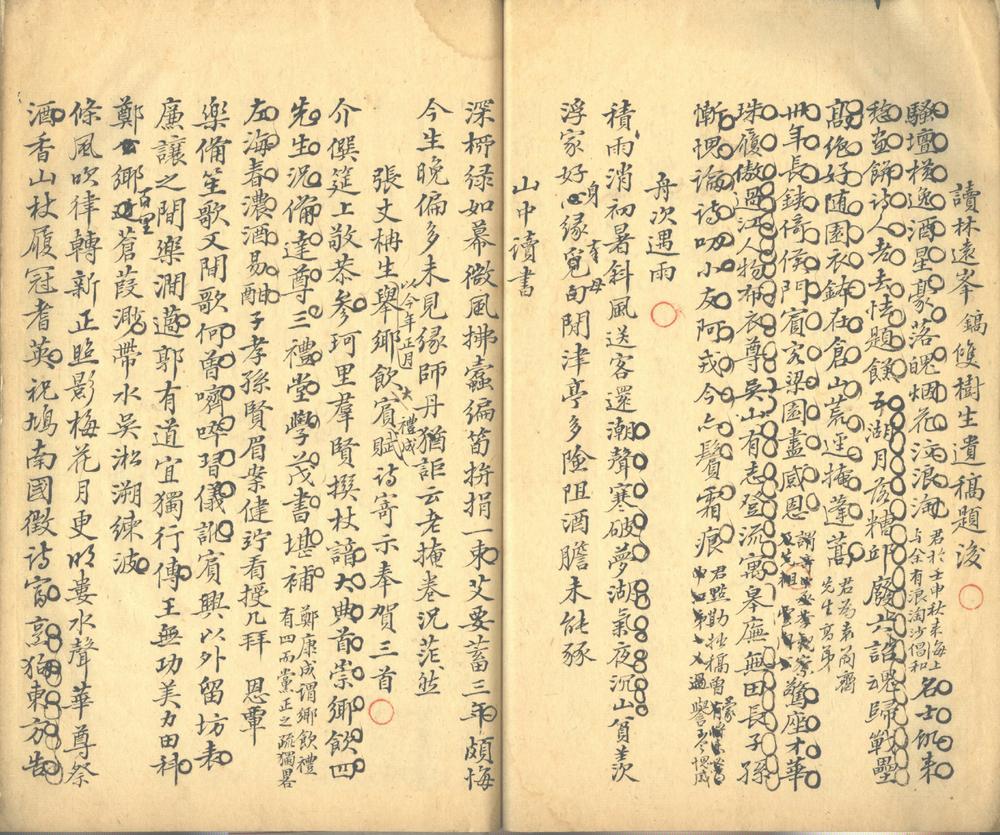 讀林遠峯鎬雙樹生遺稿題後
騷壇横逸酒星豪落魄烟花泣浪淘君於壬申秋来海上与余有浪淘沙倡和名士飢来
穐盦餙詩人老去怯題餻五湖月落糟邱廢六詔魂歸戰壘
高絶好随園衣鉢在倉山荒逕掩蓬蒿君為袁簡齋先生高弟
卅年長鋏倚侯門賓客梁園盡感恩驚座才華
珠履傲過江人物布衣尊吳山有志登流寓皋廡無田長子孫
慚愧論詩叨小友阿戎今亦鬢霜痕
舟次遇雨
積雨消初暑斜風送客還潮聲寒破夢湖氣夜沉山貧羨
浮家好身緣覓句閒津亭多險阻酒膽未能豩
山中讀書
深桞緑如幕微風拂蠹編笥拚捐一束艾要蓄三年頗悔
今生晚偏多未見緣師丹猶詎云老掩卷況茫然
張丈柟生以今年正月舉鄉飲大賓禮成賦詩寄示奉賀三首
介僎筵上敬恭参珂里羣賢撰杖諳大典首崇鄉飲四
先生況備達尊三禮堂學茂書堪補鄭康成謂鄉飲禮有四而黨正之疏獨畧
左海春濃酒易酣子孝孫賢眉案健竚看授几拜恩覃
樂備笙歌又閒歌何曾嚌啐習儀訛賓興以外留坊表
廉讓之間樂澗薖郭有道宜獨行傳王無功美力田科
鄭公鄉近百里蒼葭渺帶水吳淞溯練波
條風吹律轉新正照影梅花月更明婁水聲華尊祭
酒香山杖履冠耆英祝鳩南國徵詩富烹狗東方告